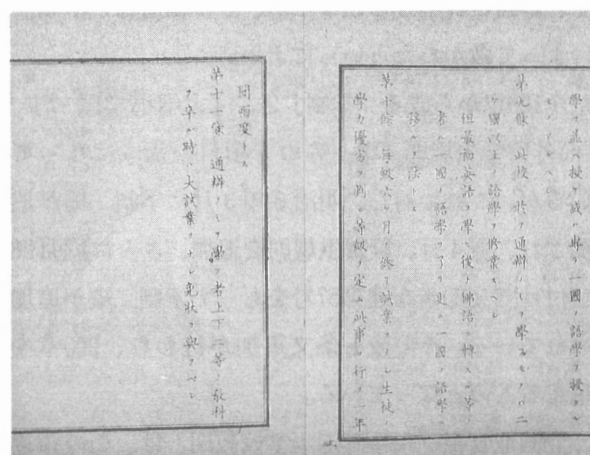 學ヲ並ヘ授ケ或ハ專ラ一國ノ語學ヲ授クル
第九條 此校ニ於テ通辯ノミヲ學フモノハ二
ケ國以上ノ語學ヲ修業スヘシ
但最初英語ヲ學ヒ後チ佛語ニ轉スル等
者ハ一國ノ語學ヲ了リ更ニ一國ノ語學ニ
移ルヲ法トス
第十條 每級六ケ月ノ終リ試業ヲナシ生徒ノ
學力優劣ヲ判シ等級ヲ定ム此事ヲ行フ一年
間兩度トス
第十一條 通辯ヲ學フ者上下二等ノ敎科
ヲ卒ル時ハ大試業ヲナシ免狀ヲ與フヘシ